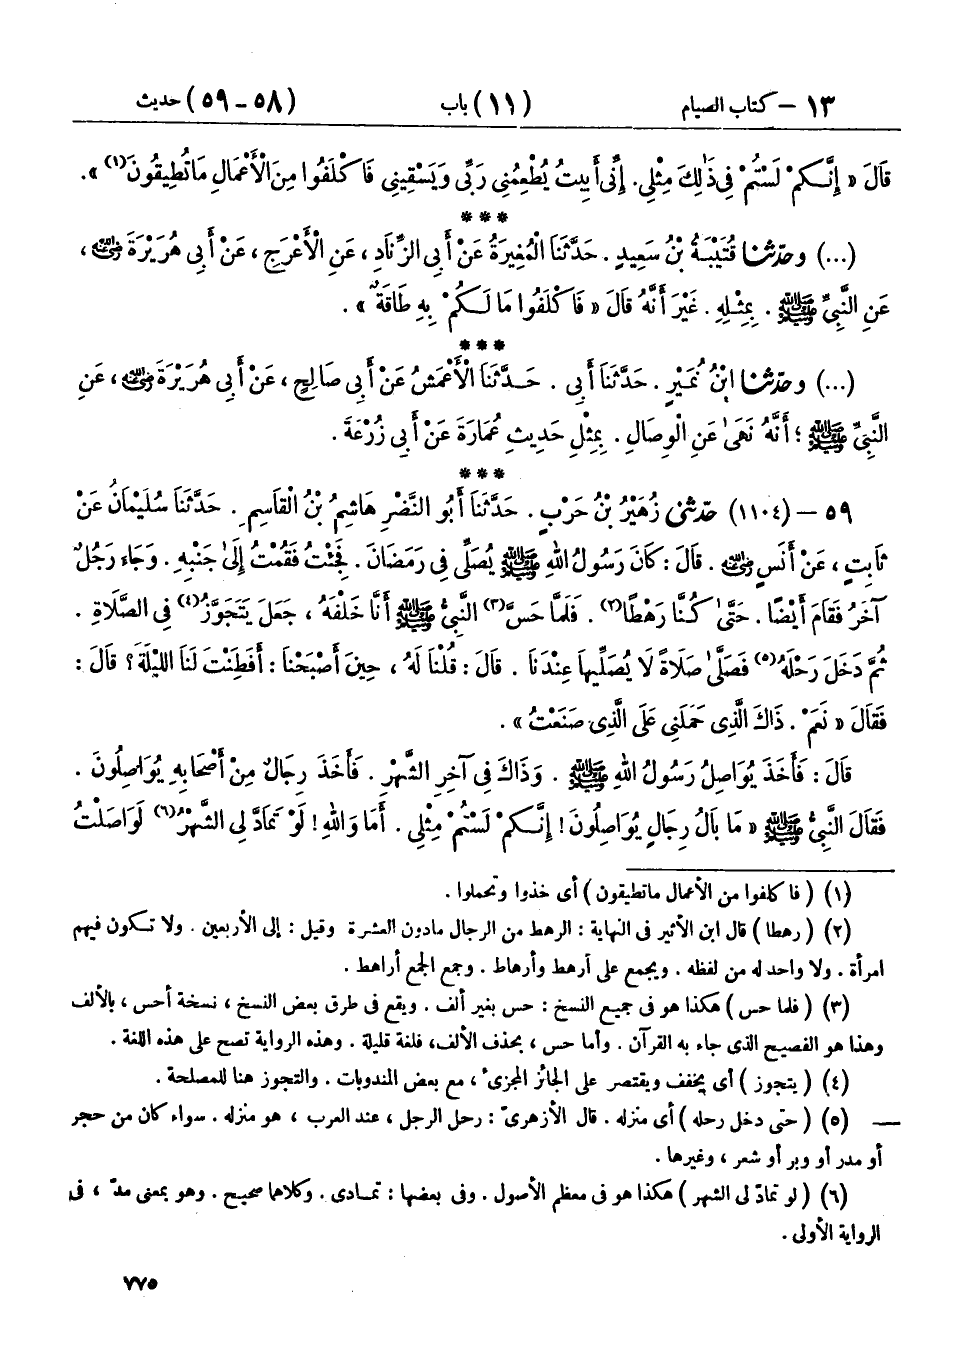 ١٣ – كتاب الصيام (١١) باب (٥٨ – ٥٩) حديث
قَالَ « إِنَّكُمْ لَسْتُمْ فِي ذَٰلِكَ مِثْلِي. إِنِّي أَبِيتُ يُطْعِمُنِي رَبِّي وَيَسْقِينِي فَاكْلَفُوا مِنَ الْأَعْمَالِ مَا تُطِيقُونَ(١) ».
***
(...) وحَدَّثَنَا قُتَيْبَةُ بْنُ سَعِيدٍ. حَدَّثَنَا الْمُغِيرَةُ عَنْ أَبِي الزِّنَادِ، عَنِ الْأَعْرَجِ، عَنْ أَبِي هُرَيْرَةَ رضي الله عنه،
عَنِ النَّبِيِّ ﷺ. بِمِثْلِهِ. غَيْرَ أَنَّهُ قَالَ « فَاكْلَفُوا مَا لَكُمْ بِهِ طَاقَةٌ ».
***
(...) وحَدَّثَنَا ابْنُ نُمَيْرٍ. حَدَّثَنَا أَبِي. حَدَّثَنَا الْأَعْمَشُ عَنْ أَبِي صَالِحٍ، عَنْ أَبِي هُرَيْرَةَ رضي الله عنه، عَنِ
النَّبِيِّ ﷺ؛ أَنَّهُ نَهَىٰ عَنِ الْوِصَالِ. بِمِثْلِ حَدِيثِ عُمَارَةَ عَنْ أَبِي زُرْعَةَ.
***
٥٩ – (١١٠٤) حَدَّثَنِي زُهَيْرُ بْنُ حَرْبٍ. حَدَّثَنَا أَبُو النَّضْرِ هَاشِمُ بْنُ الْقَاسِمِ. حَدَّثَنَا سُلَيْمَانُ عَنْ
ثَابِتٍ، عَنْ أَنَسٍ رضي الله عنه. قَالَ: كَانَ رَسُولُ اللهِ ﷺ يُصَلِّي فِي رَمَضَانَ. فَجِئْتُ فَقُمْتُ إِلَىٰ جَنْبِهِ. وَجَاءَ رَجُلٌ
آخَرُ فَقَامَ أَيْضًا. حَتَّىٰ كُنَّا رَهْطًا(٢). فَلَمَّا حَسَّ(٣) النَّبِيُّ ﷺ أَنَّا خَلْفَهُ، جَعَلَ يَتَجَوَّزُ(٤) فِي الصَّلَاةِ.
ثُمَّ دَخَلَ رَحْلَهُ(٥) فَصَلَّىٰ صَلَاةً لَا يُصَلِّيهَا عِنْدَنَا. قَالَ: قُلْنَا لَهُ، حِينَ أَصْبَحْنَا: أَفَطِنْتَ لَنَا اللَّيْلَةَ؟ قَالَ:
فَقَالَ « نَعَمْ. ذَاكَ الَّذِي حَمَلَنِي عَلَى الَّذِي صَنَعْتُ ».
قَالَ: فَأَخَذَ يُوَاصِلُ رَسُولُ اللهِ ﷺ. وَذَاكَ فِي آخِرِ الشَّهْرِ. فَأَخَذَ رِجَالٌ مِنْ أَصْحَابِهِ يُوَاصِلُونَ.
فَقَالَ النَّبِيُّ ﷺ « مَا بَالُ رِجَالٍ يُوَاصِلُونَ! إِنَّكُمْ لَسْتُمْ مِثْلِي. أَمَا وَاللهِ! لَوْ تَمَادَّ لِي الشَّهْرُ(٦) لَوَاصَلْتُ
(١) (فاكلفوا من الأعمال ماتطيقون) أى خذوا وتحملوا.
(٢) (رهطا) قال ابن الأثير فى النهاية: الرهط من الرجال مادون العشرة وقيل: إلى الأربعين. ولا تكون فيهم
امرأة. ولا واحد له من لفظه. ويجمع على أرهط وأرهاط. وجمع الجمع أراهط.
(٣) (فلما حس) هكذا هو فى جميع النسخ: حس بغير ألف. ويقع فى طرق بعض النسخ، نسخة أحس، بالألف
وهذا هو الفصيح الذى جاء به القرآن. وأما حس، بحذف الألف، فلغة قليلة. وهذه الرواية تصح على هذه اللغة.
(٤) (يتجوز) أى يخفف ويقتصر على الجائز المجزىء، مع بعض المندوبات. والتجوز هنا للمصلحة.
(٥) (حتى دخل رحله) أى منزله. قال الأزهرىّ: رحل الرجل، عند العرب، هو منزله. سواء كان من حجر
أو مدر أو وبر أو شعر، وغيرها.
(٦) (لو تمادّ لى الشهر) هكذا هو فى معظم الأصول. وفى بعضها: تمادى. وكلاها صحيح. وهو بمعنى مدّ، فى
الرواية الأولى.
٧٧٥